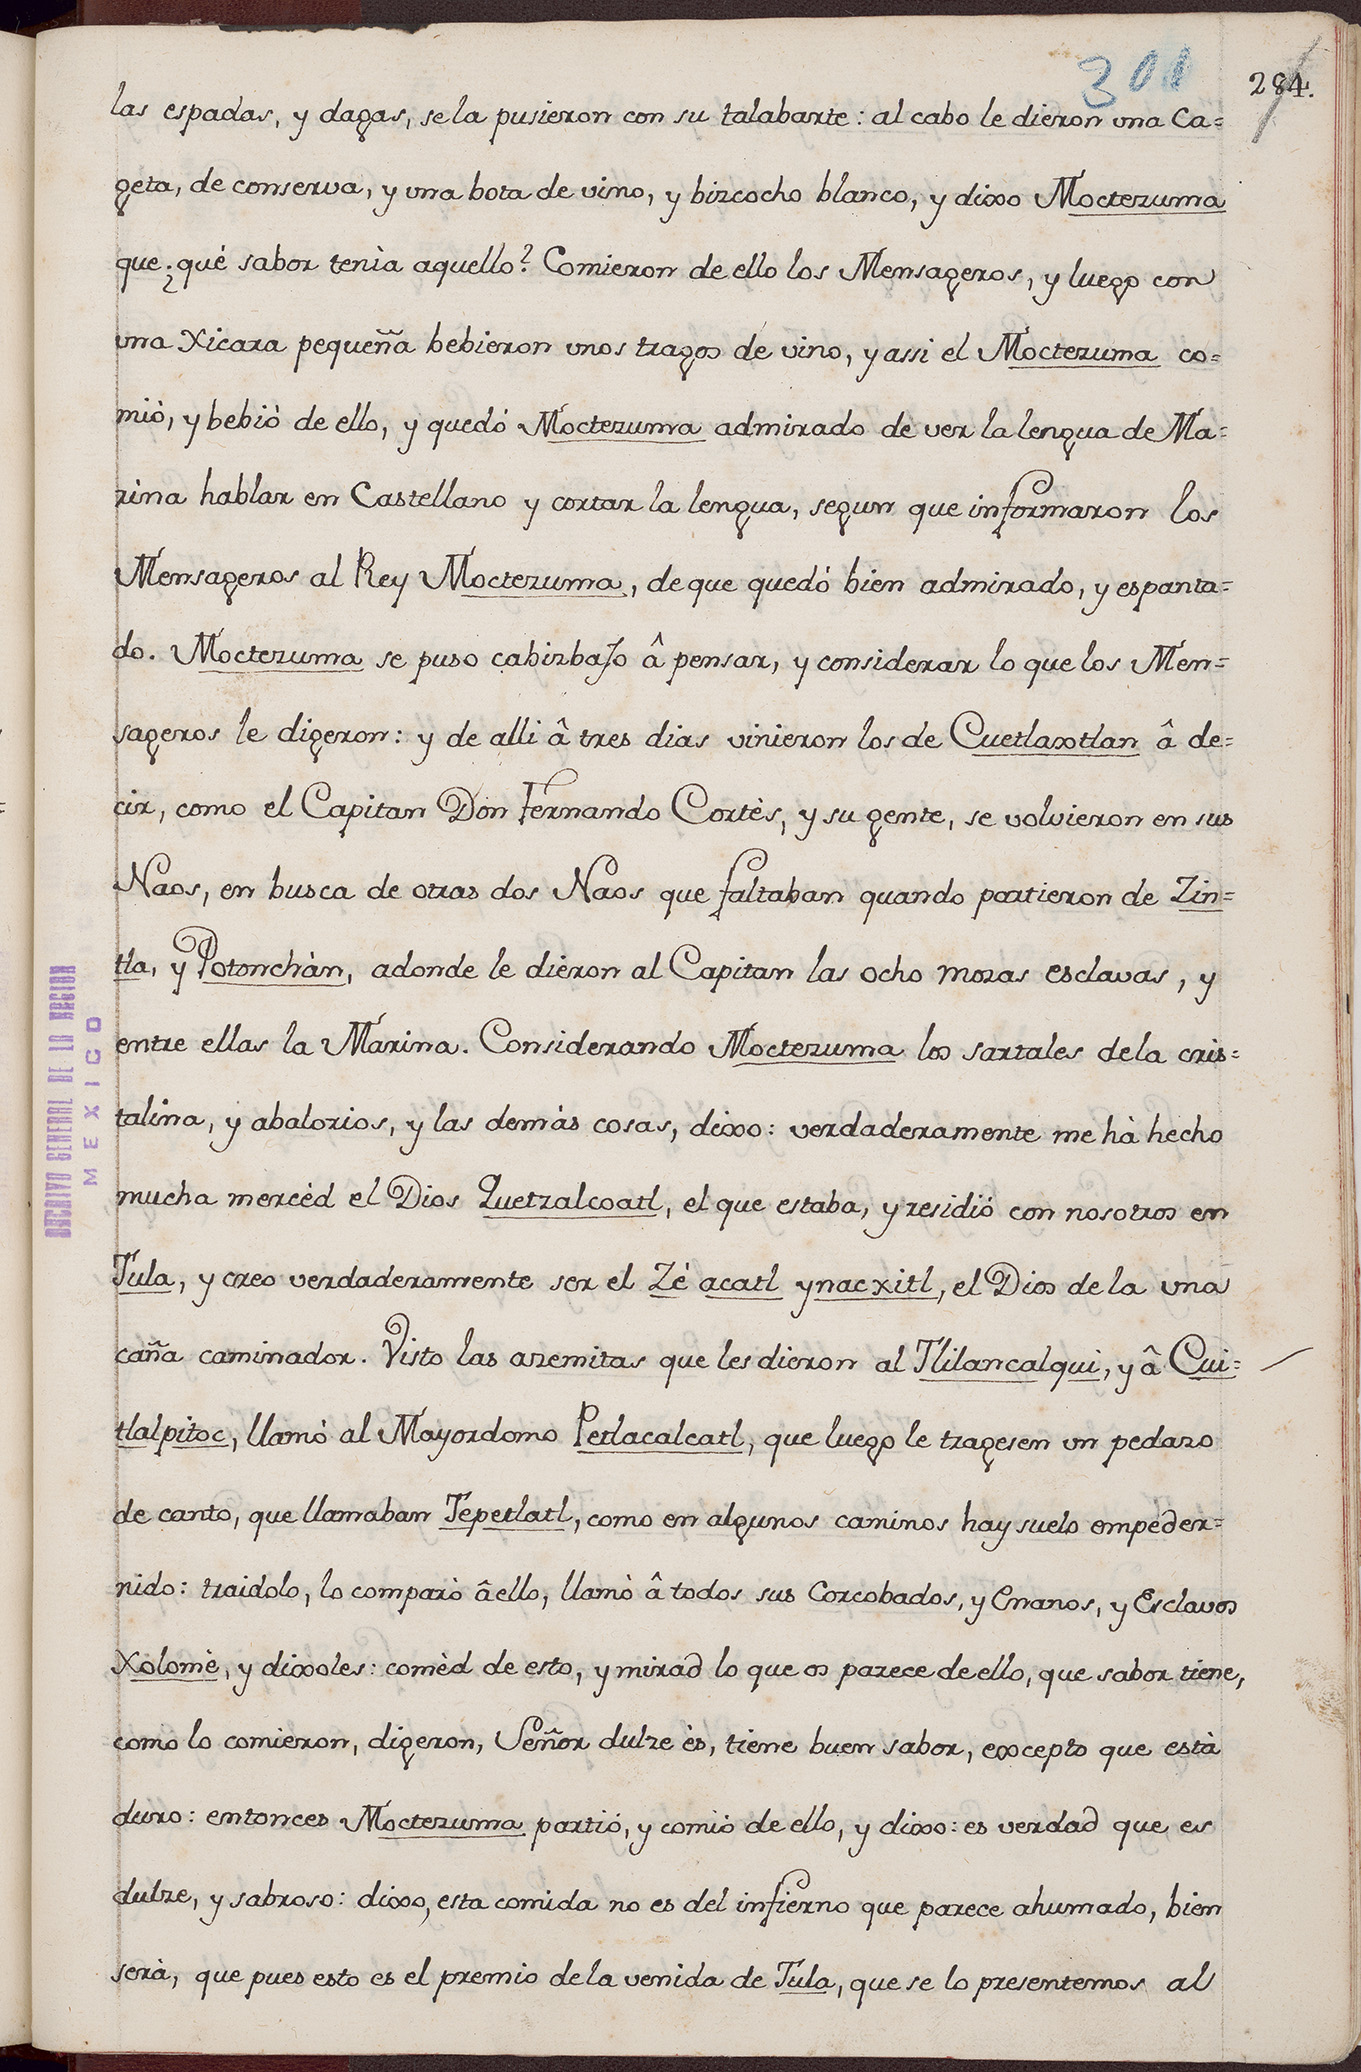 301
284.
las espadas, y dagas, se la pusieron con su talabarte: al cabo le dieron una Ca=
geta, de conserva, y una bota de vino, y bizcocho blanco, y dixo Moctezuma
que ¿qué sabor tenìa aquello? Comieron de ello los Mensageros, y luego con
una Xicara pequeña bebieron unos tragos de vino, y assi el Moctezuma co=
miò, y bebiò de ello, y quedó Moctezuma admirado de ver la lengua de Ma=
rina hablar en Castellano y cortar la lengua, segun que informaron los
Mensageros al Rey Moctezuma, de que quedó bien admirado, y espanta=
do. Moctezuma se puso cabizbajo â pensar, y considerar lo que los Men=
sageros le digeron: y de alli â tres dias vinieron los de Cuetlaxtlan â de=
cir, como el Capitan Don Fernando Cortès, y su gente, se volvieron en sus
Naos, en busca de otras dos Naos que faltaban quando partieron de Zin=
tla, y Potonchàn, adonde le dieron al Capitan las ocho mozas esclavas, y
entre ellas la Marina. Considerando Moctezuma los sartales de la cris=
talina, y abalorios, y las demàs cosas, dixo: verdaderamente me hà hecho
mucha mercèd el Dios Quetzalcoatl, el que estaba, y residió con nosotros en
Tula, y creo verdaderamente ser el Zè acatl ynacxitl, el Dios de la una
caña caminador. Visto las azemitas que les dieron al Tlilancalqui, y â Cui=
tlalpitoc, llamò al Mayordomo Petlacalcatl, que luego le tragesen un pedazo
de canto, que llamaban Tepetlatl, como en algunos caminos hay suelo empeder=
nido: traidolo, lo comparò â ello, llamò â todos sus Corcobados, y Enanos, y Esclavos
Xolomè, y dixoles: comèd de esto, y mirad lo que os parece de ello, que sabor tiene,
como lo comieron, digeron, Señor dulze ès, tiene buen sabor, excepto que està
duro: entonces Moctezuma partió, y comiò de ello, y dixo: es verdad que es
dulze, y sabroso: dixo, esta comida no es del infierno que parece ahumado, bien
serà, que pues esto es el premio de la venida de Tula, que se lo presentemos al
ARCHIVO GENERAL DE LA NACION
MEXICO